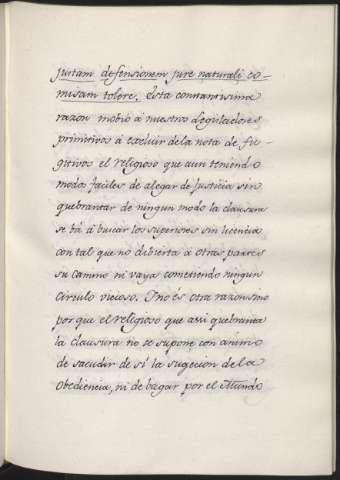 justam defensionem jure naturali co-
musam tolere. Esta constantisima
razon mobió á nuestros Legisladores
primitivos á excluir de la nota de fu-
gitivos el religioso que aun teniendo
modos faciles de alegar de Justicia sin
quebrantar de ningun modo la clausura
se bá á buscar los superiores sin licencia
con tal que no debierta á otras partes
su camino ni vaya cometiendo ningun
circulo vicioso. I no és otra razon sino
por que el religioso que assi quebranta
la clausura no se supone con animo
de sacudir de sí la sugecion de la
obediencia, ni de bagar por el Mundo